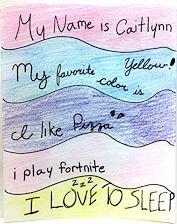 My Name is Caitlynn
My favorite Yellow!
color is
I like Pizza
i play fortnite
zzz
I LOVE TO SLEEP